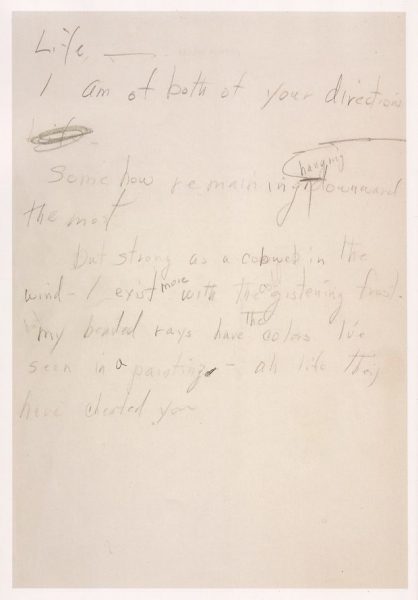 Life —
I am of both of your directions
Life
Somehow remaining hanging downward
the most
but strong as a cobweb in the
wind – I exist more with the cold glistening frost.
my beaded rays have the colors I've
seen in a painting – ah life they
have cheated you